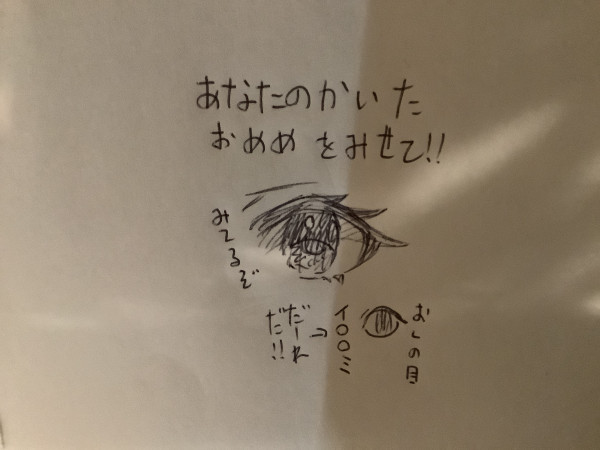 あなたのかいた
おめめをみせて!!
みてるぞ
おしの目
イ〇〇ミ
だーれ
だ!!